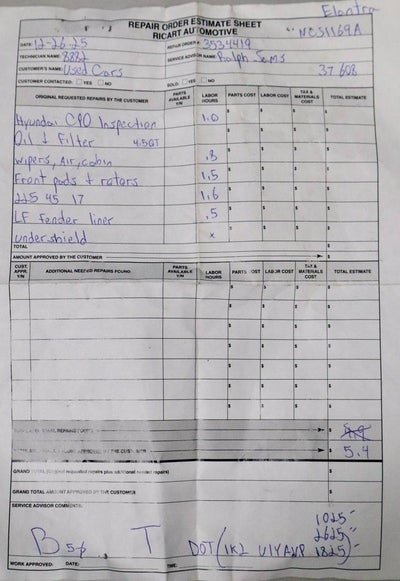 Elantra
REPAIR ORDER ESTIMATE SHEET
RICART AUTOMOTIVE
NCS1169A
DATE: 12-26-25 REPAIR ORDER # 3534419
TECHNICIAN NAME: 8882 SERVICE ADVISOR NAME: Ralph Sams
CUSTOMER'S NAME: Used Cars 37 608
CUSTOMER CONTACTED: YES NO SOLD: YES NO
ORIGINAL REQUESTED REPAIRS BY THE CUSTOMER PARTS AVAILABLE Y/N LABOR HOURS PARTS COST LABOR COST TAX & MATERIALS COST TOTAL ESTIMATE
Hyundai CPO Inspection 1.0 $ $ $ $
Oil & Filter 4.5QT $ $ $ $
wipers, Air, cabin .8 $ $ $ $
Front pads & rotors 1,5 $ $ $ $
225 45 17 1,6 $ $ $ $
LF fender liner .5 $ $ $ $
undershield x $ $ $ $
TOTAL $
AMOUNT APPROVED BY THE CUSTOMER $
CUST. APPR. Y/N ADDITIONAL NEEDED REPAIRS FOUND PARTS AVAILABLE Y/N LABOR HOURS PARTS COST LABOR COST TAX & MATERIALS COST TOTAL ESTIMATE
$ $ $ $
$ $ $ $
$ $ $ $
$ $ $ $
$ $ $ $
$ $ $ $
$ $ $ $
$
BY THE CUSTOMER $ 5.4
GRAND TOTAL (Original requested repairs plus additional needed repairs) $
GRAND TOTAL AMOUNT APPROVED BY THE CUSTOMER $
SERVICE ADVISOR COMMENTS:
1025
2625
B T DOT (1K2 1825)
WORK APPROVED: DATE: TIME: